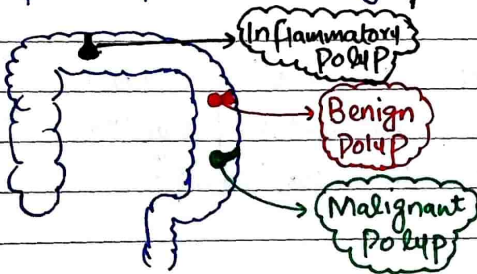 Inflammatory
Polyp
Benign
Polyp
Malignant
Polyp